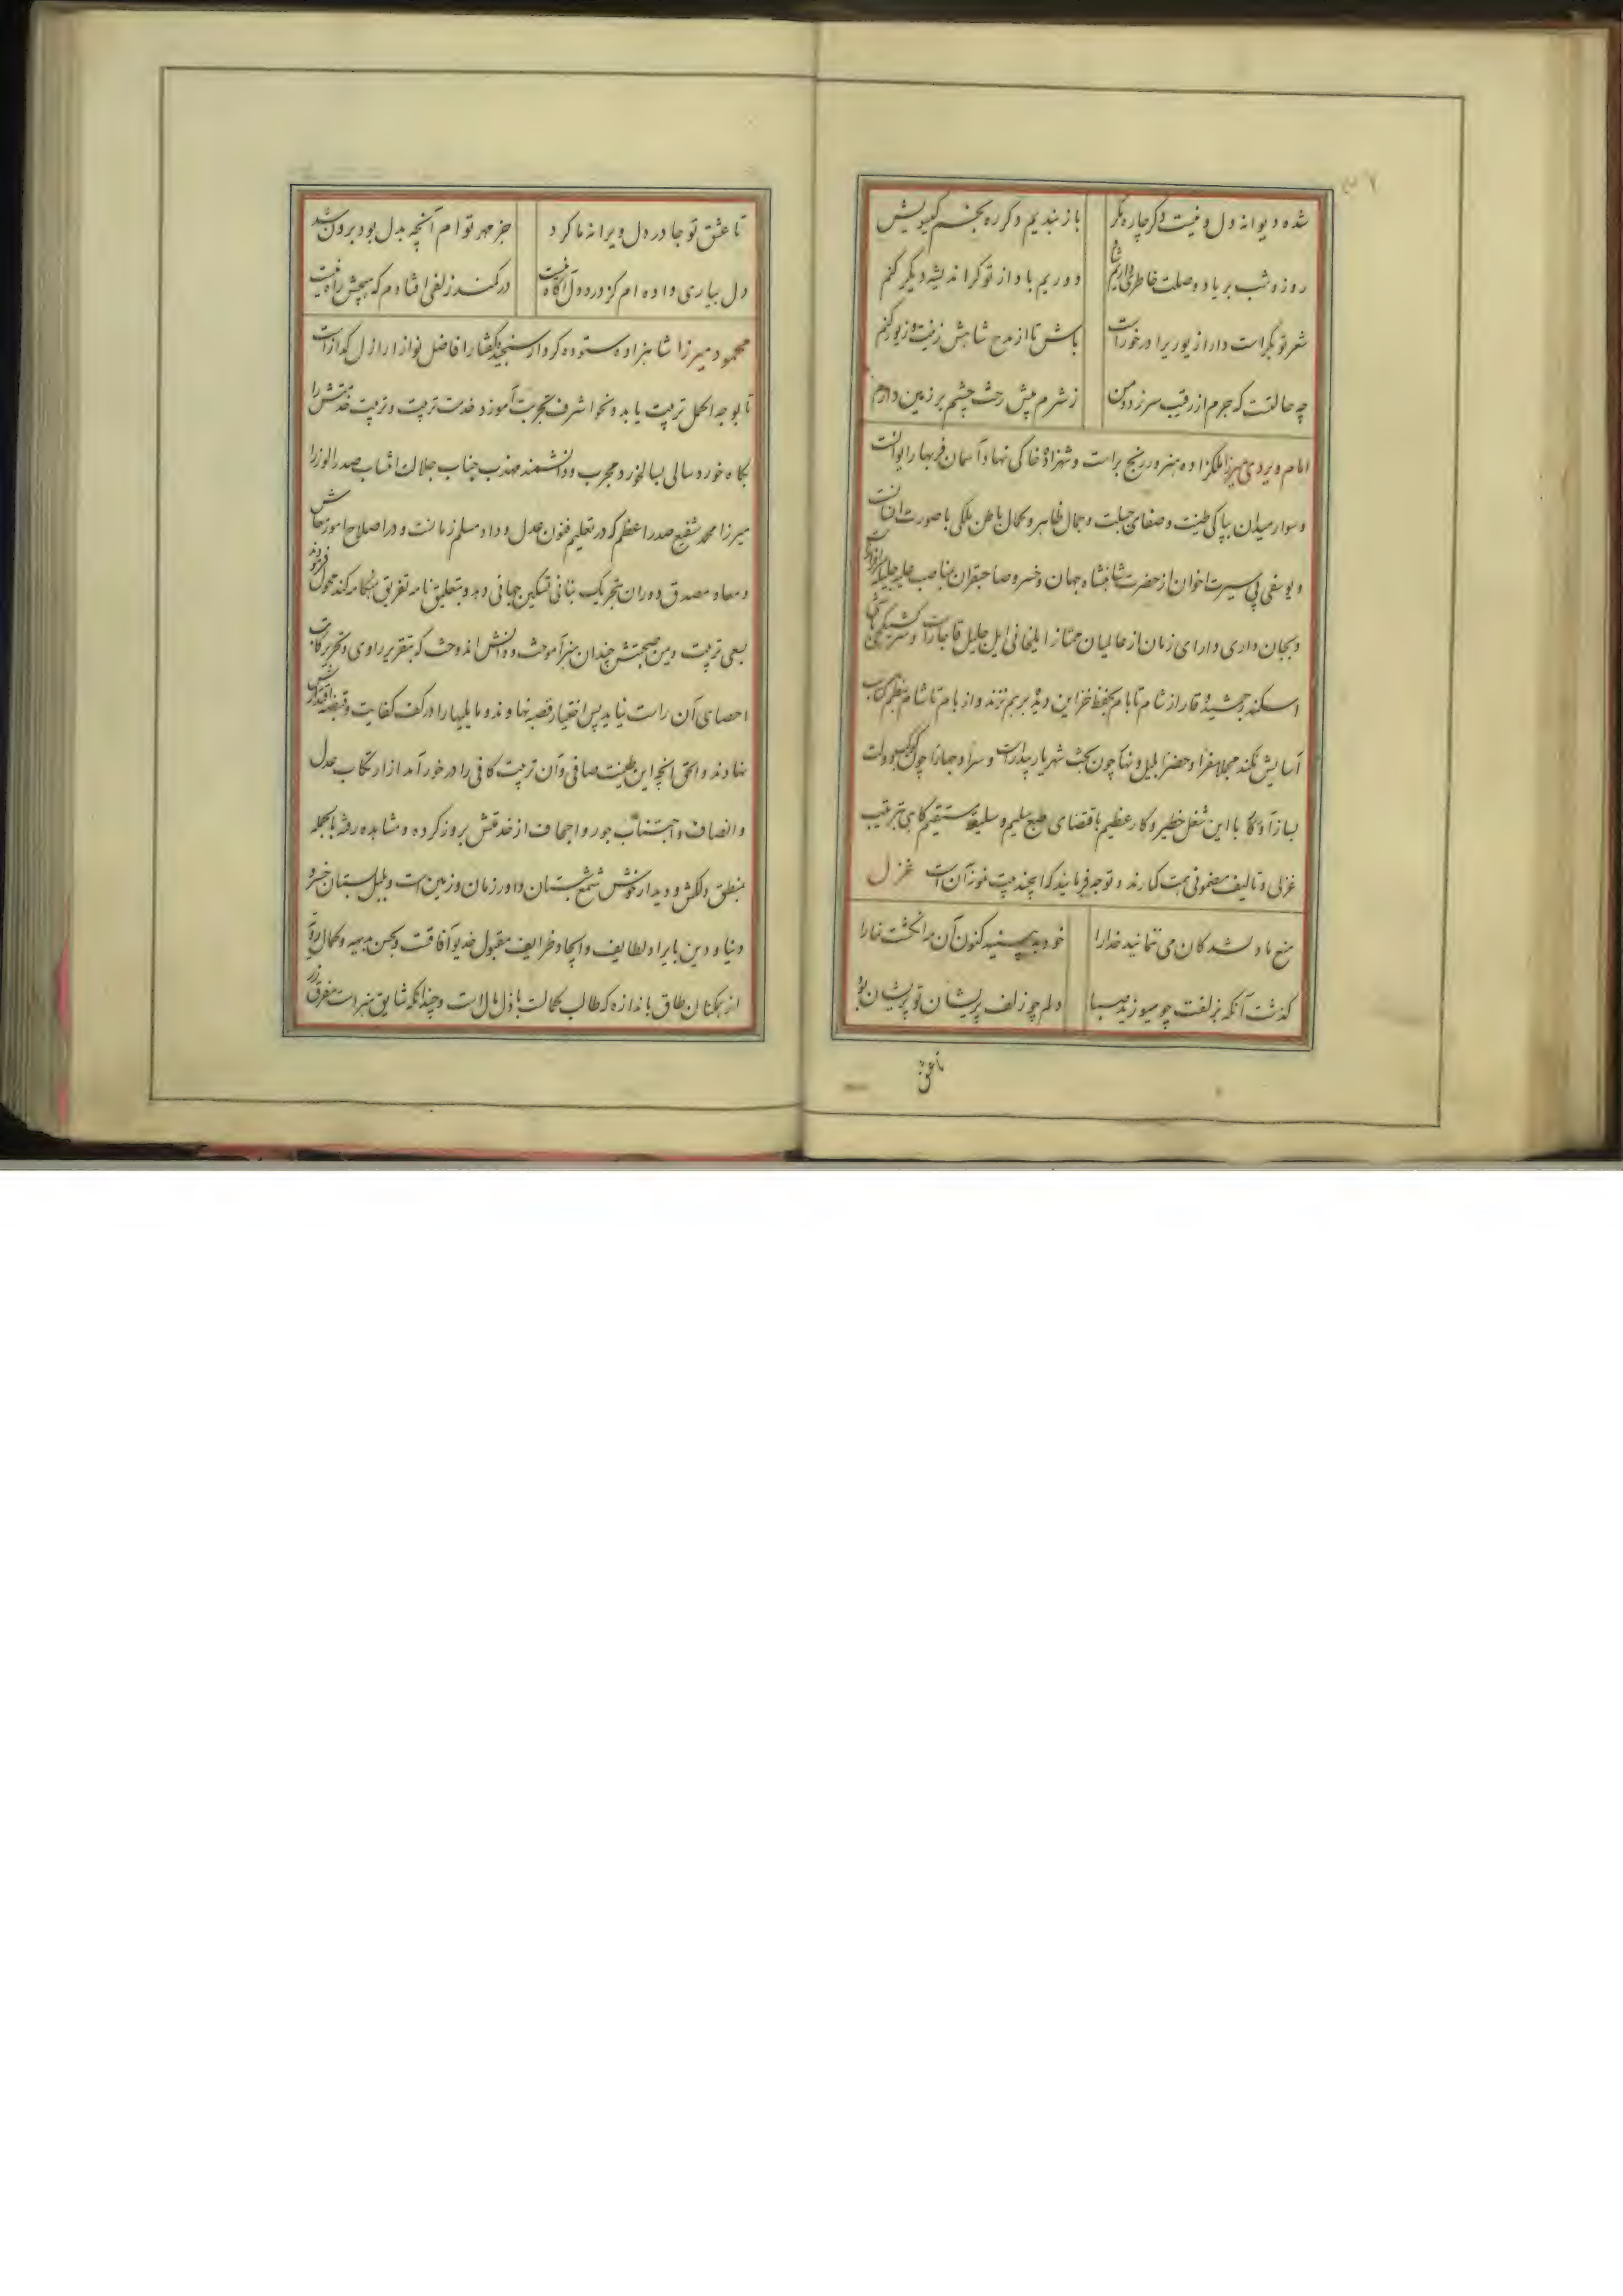 شده دیوانه دل و نیست دگر چاره مگر
باز بندیم دگر ره بخم گیسویش
روز و شب بر یاد وصلت خاطری دارم شاد
دوریم باد از تو گر اندیشه دیگر کنم
شعر تو بکر است دارا زیور او را درخور است
باش تا از مدح شاهش زینت و زیور کنم
چه حالتست که جرم از رقیب سر زد و من
ز شرم پیش رخت چشم بر زمین دارم
امام ویردی میرزا ملکزاده هنرور رنج بر است و شهزاده خاکی نهاد آسمان فر بهار ایوانست
و سوار میدان بپاکی طینت و صفای جبلت و جمال ظاهر و کمال باطن ملکی با صورت انسانست
و یوسفی بی سیرت اخوان از حضرت شاهنشاه جهان و خسرو صاحبقران بمناصب علیه جلیله سرافراز
و بجان داری دارای زمان از عالمیان ممتاز ایلخانی ایل جلیل قاجار است و سرکشیکچی باشی
اسکندر جمشید وقار از شام تا بام بحفظ خزاین دیده بر هم نزند و از بام تا شام بنظم کتایب
آسایش نکند مجملا سفرا و حضرا بلیل و نهار چون بخت شهریار بیدار است و سرا و جهارا چون کوکب دولت
بساز آو کا با این شغل خطیر و کار عظیم باقتضای طبع سلیم و سلیقه مستقیم گاهی بترتیب
غزلی و تالیف مضمونی همت گمارند و توجه فرمایند که این چند بیت نمونه آن است غزل
منع ما دلشدگان می ننمائید خدا را
خود ببینید کنون آن مه انگشت نما را
گذشت آنکه بزلفت چو میوزید صبا
دلم چو زلف پریشان تو پریشان بود
تا عشق
تا عشق تو جا در دل ویرانه ما کرد
جز مهر توام آنچه بدل بود برون شد
دل بیاری داده ام کز درد دل آگاه نیست
در کمند زلفی افتادم که هیچش راه نیست
محمود میرزا شاهزاده ستوده کردار سنجیده گفتار افاضل نواز اراذل گداز است
تا بوجه اکمل تربیت یابد و بنحو اشرف تجربت آموزد خدمت تربیت و تربیت خدمتش را
بگاه خورد سالی بسالخورد مجرب و دانشمند مهذب جناب جلالت انتساب صدر الوزرا
میرزا محمد شفیع صدر اعظم که در تعلیم فنون عدل و داد مسلم زمانست و در اصلاح امور معاش
و معاد مصدق دوران بتحریک بنانی تسکین جهانی دهد و بتعلیق نامه تفریق هنگامه کند محول فرمودند
بسعی تربیت و یمن صحبتش چندان هنر آموخت و دانش اندوخت که بتقریر راوی و تحریر کاتب
احصای آن راست نیاید پس اختیار قصبه نهاوند و ما یلیها را در کف کفایت و قبضه اقتدارش
نهادند و الحق آنچه این طینت صافی و آن تربیت کافی را در خور آمد از ارتکاب عدل
و انصاف و اجتناب جور و اجحاف از خدمتش بروز کرده و مشاهده رفته بالجمله
بمنطق دلکش و دیدار خوش شمع شبستان داور زمان و زمین است و بلبل بستان خسرو
دنیا و دین بایراد لطایف و ایجاد ظرایف مقبول خدیو آفاقست و بحسن بدیهه و کمال رویه
از همگنان طاق باندازه که طالب کمالست باذل مال است و چندانکه شایق هنر است مفرق زر